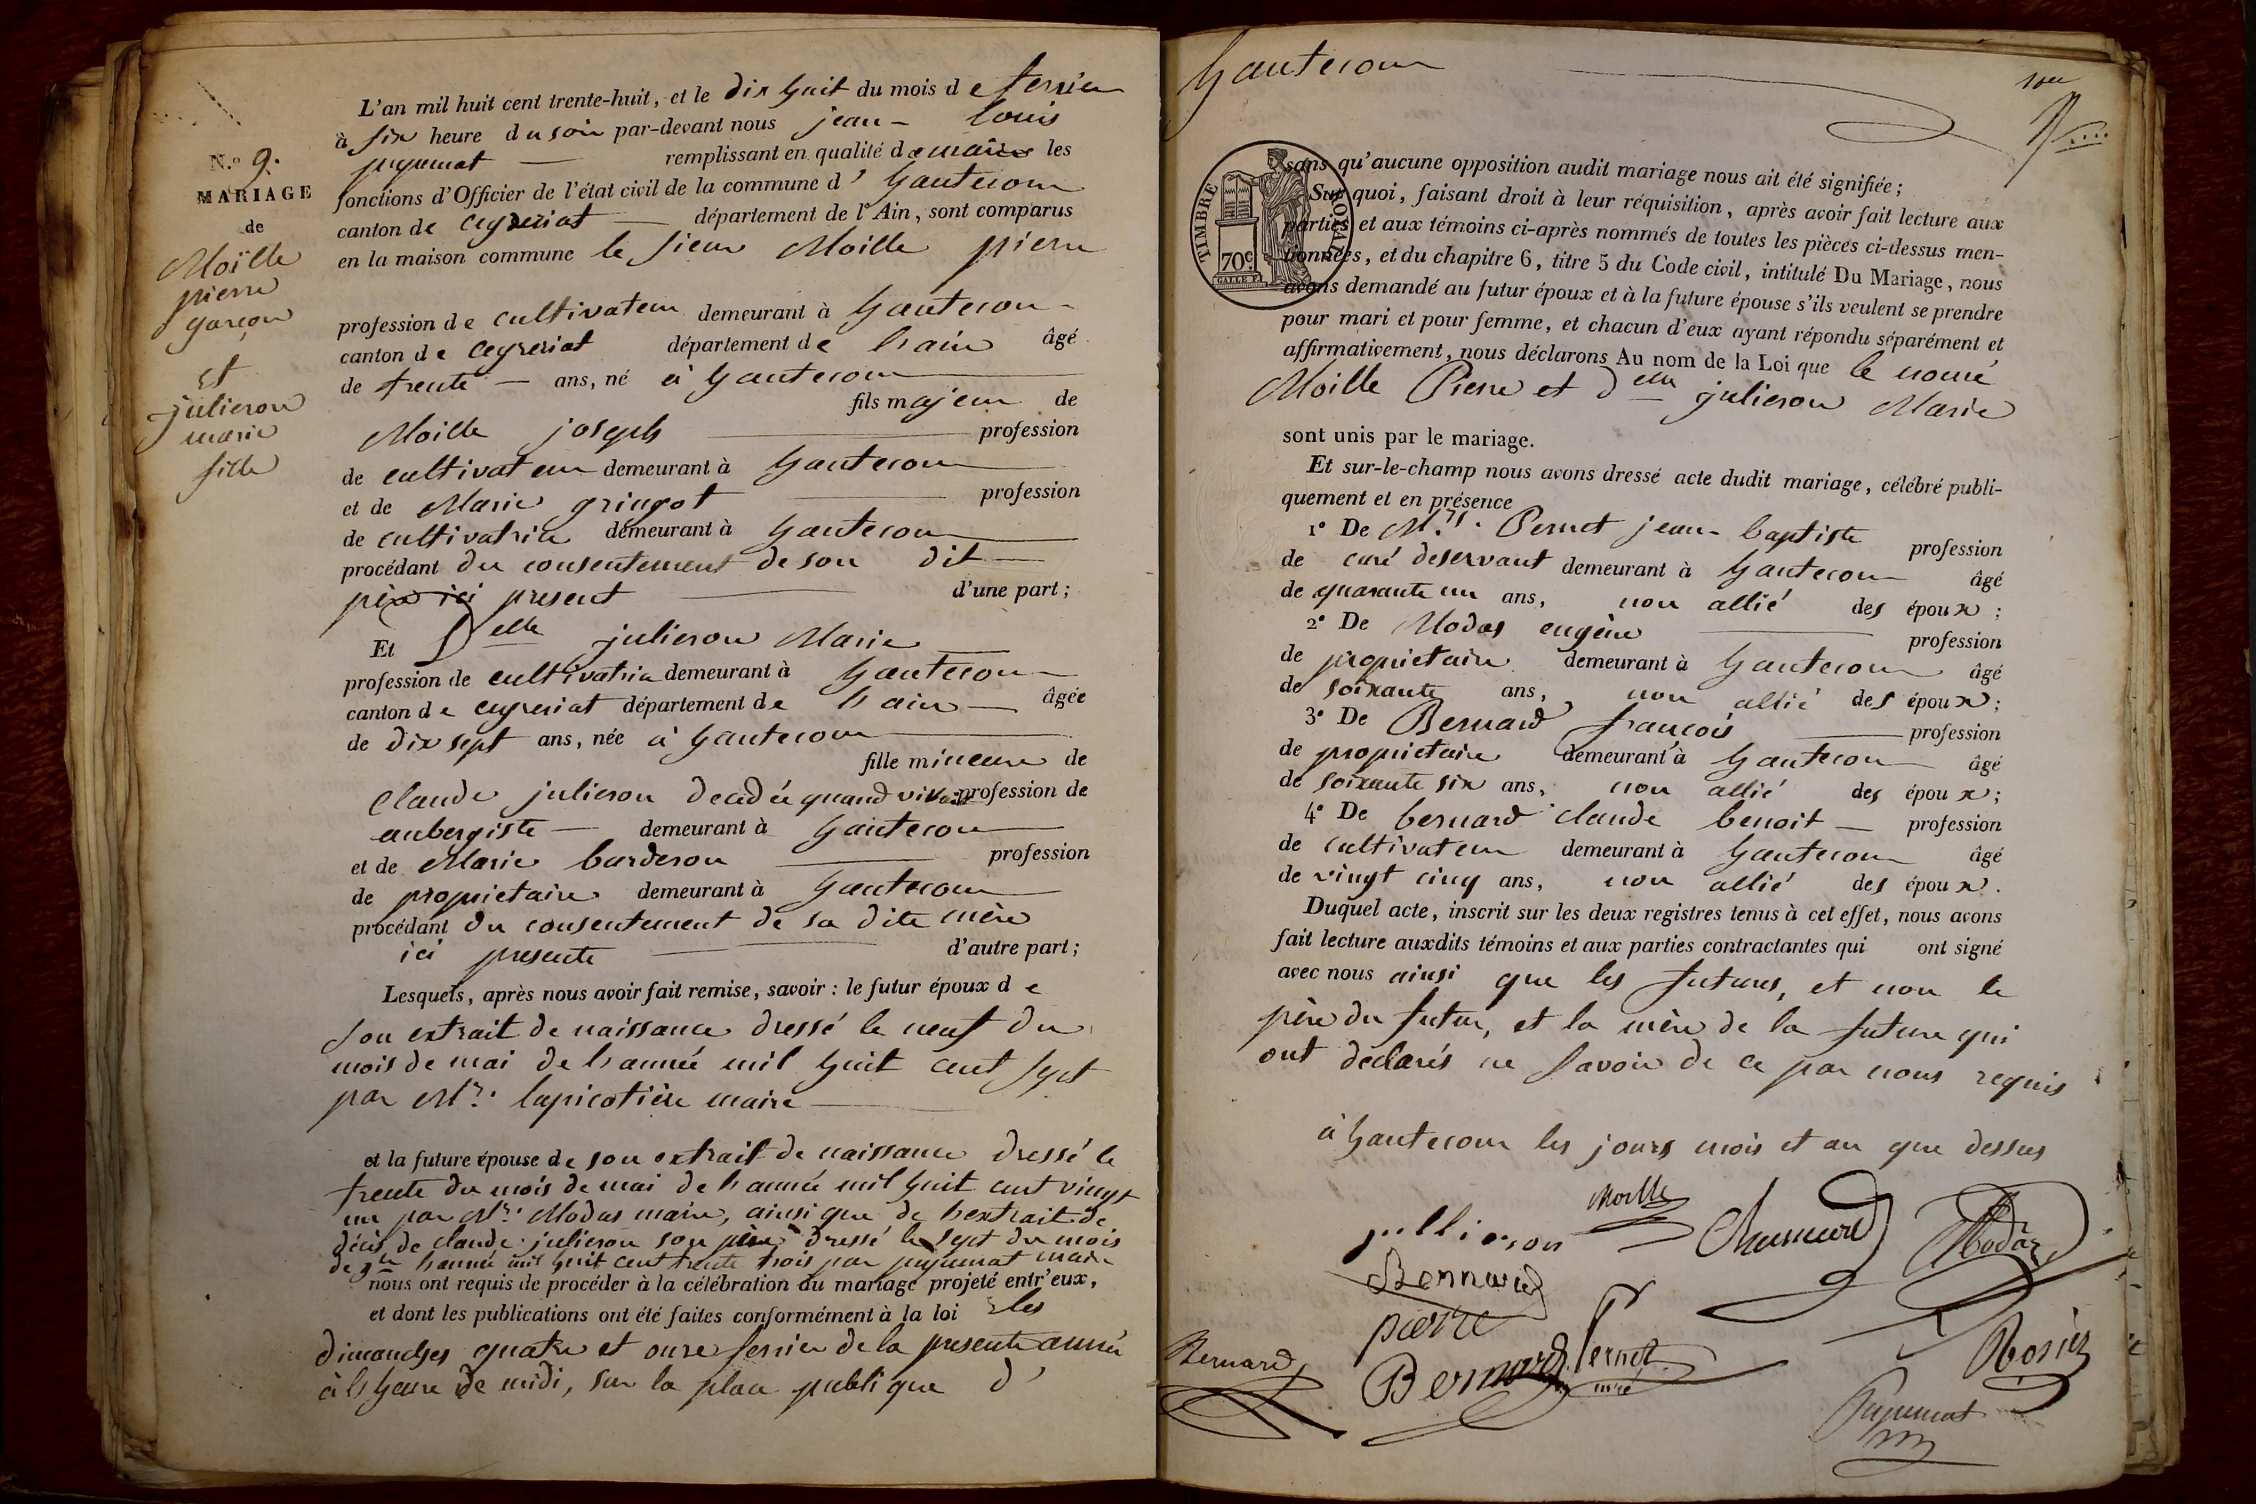 L'an mil huit cent trente-huit, et le dix huit du mois de fevrier
à six heure du soir par-devant nous jean-louis
pujumat remplissant en qualité de maire les
fonctions d'Officier de l'état civil de la commune d'hautecour
canton de ceyzeriat département de l'Ain, sont comparus
en la maison commune le sieur Moille pierre
N.o 9.
MARIAGE
de
Moïlle
pierre
garçon
et
julieron
marie
fille
profession de cultivateur demeurant à hautecour
canton de ceyzeriat département de l'ain âgé
de trente ans, né à hautecour
fils majeur de
Moille joseph profession
de cultivateur demeurant à hautecour
et de Marie gringot profession
de cultivatrice demeurant à hautecour
procédant du consentement de son dit
père ici present d'une part;
Et Delle julieron Marie
profession de cultivatrice demeurant à hautecour
canton de ceyzeriat département de l'ain âgée
de dix sept ans, née à hautecour
fille mineure de
Claude julieron decedée quand vivait profession de
aubergiste demeurant à hautecour
et de Marie barderon profession
de proprietaire demeurant à hautecour
procédant du consentement de sa dite mère
ici presente d'autre part;
Lesquels, après nous avoir fait remise, savoir: le futur époux de
son extrait de naissance dressé le neuf du
mois de mai de l'année mil huit cent sept
par Mr. lapicotière maire
et la future épouse de son extrait de naissance dressé le
trente du mois de mai de l'année mil huit cent vingt
un par Mr. Modas maire, ainsi que de l'extrait de
décès de claude julieron son père dressé le sept du mois
de 9bre l'année mil huit cent trente trois par pujumat maire
nous ont requis de procéder à la célébration du mariage projeté entr'eux,
et dont les publications ont été faites conformément à la loi les
dimanches quatre et onze fevrier de la presente année
à l'heure de midi, sur la place publique d'
hautecour
TIMBRE ROYAL
70c
sans qu'aucune opposition audit mariage nous ait été signifiée;
Sur quoi, faisant droit à leur réquisition, après avoir fait lecture aux
parties et aux témoins ci-après nommés de toutes les pièces ci-dessus men-
tionnées, et du chapitre 6, titre 5 du Code civil, intitulé Du Mariage, nous
avons demandé au futur époux et à la future épouse s'ils veulent se prendre
pour mari et pour femme, et chacun d'eux ayant répondu séparément et
affirmativement, nous déclarons Au nom de la Loi que le nomé
Moille Pierre et delle julieron Marie
sont unis par le mariage.
Et sur-le-champ nous avons dressé acte dudit mariage, célébré publi-
quement et en présence
1° De Mr. Pernet jean-baptiste profession
de curé deservant demeurant à hautecour âgé
de quarante un ans, non allié des époux;
2° De Modas eugène profession
de proprietaire demeurant à hautecour âgé
de soixante ans, non allié des époux;
3° De Bernard françois profession
de proprietaire demeurant à hautecour âgé
de soixante six ans, non allié des époux;
4° De bernard claude benoit profession
de cultivateur demeurant à hautecour âgé
de vingt cinq ans, non allié des époux.
Duquel acte, inscrit sur les deux registres tenus à cet effet, nous avons
fait lecture auxdits témoins et aux parties contractantes qui ont signé
avec nous ainsi que les futures, et non le
père du futur, et la mère de la future qui
ont declarés ne savoir de ce par nous requis
à hautecour les jours mois et an que dessus
Moille
jullieron
Modas
Bernard
pierre
Bernard
Bernard
Pernet
curé
Rosier
Pujumat